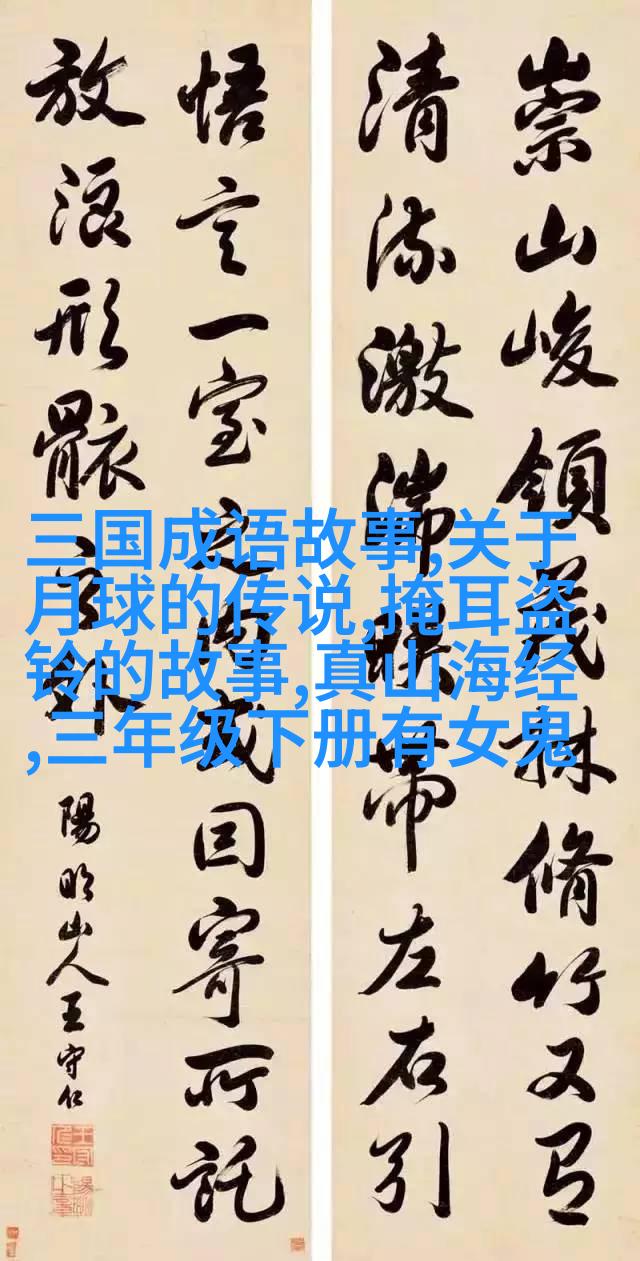 崇山峻領茂林脩竹又有
清流激湍帶左右引
悟言一室之内或因寄所託
放浪形骸之外
陽明山人王守仁
三国成语故事,关于
月球的传说,掩耳盗
铃的故事,真山海经
,三年级下册有女鬼